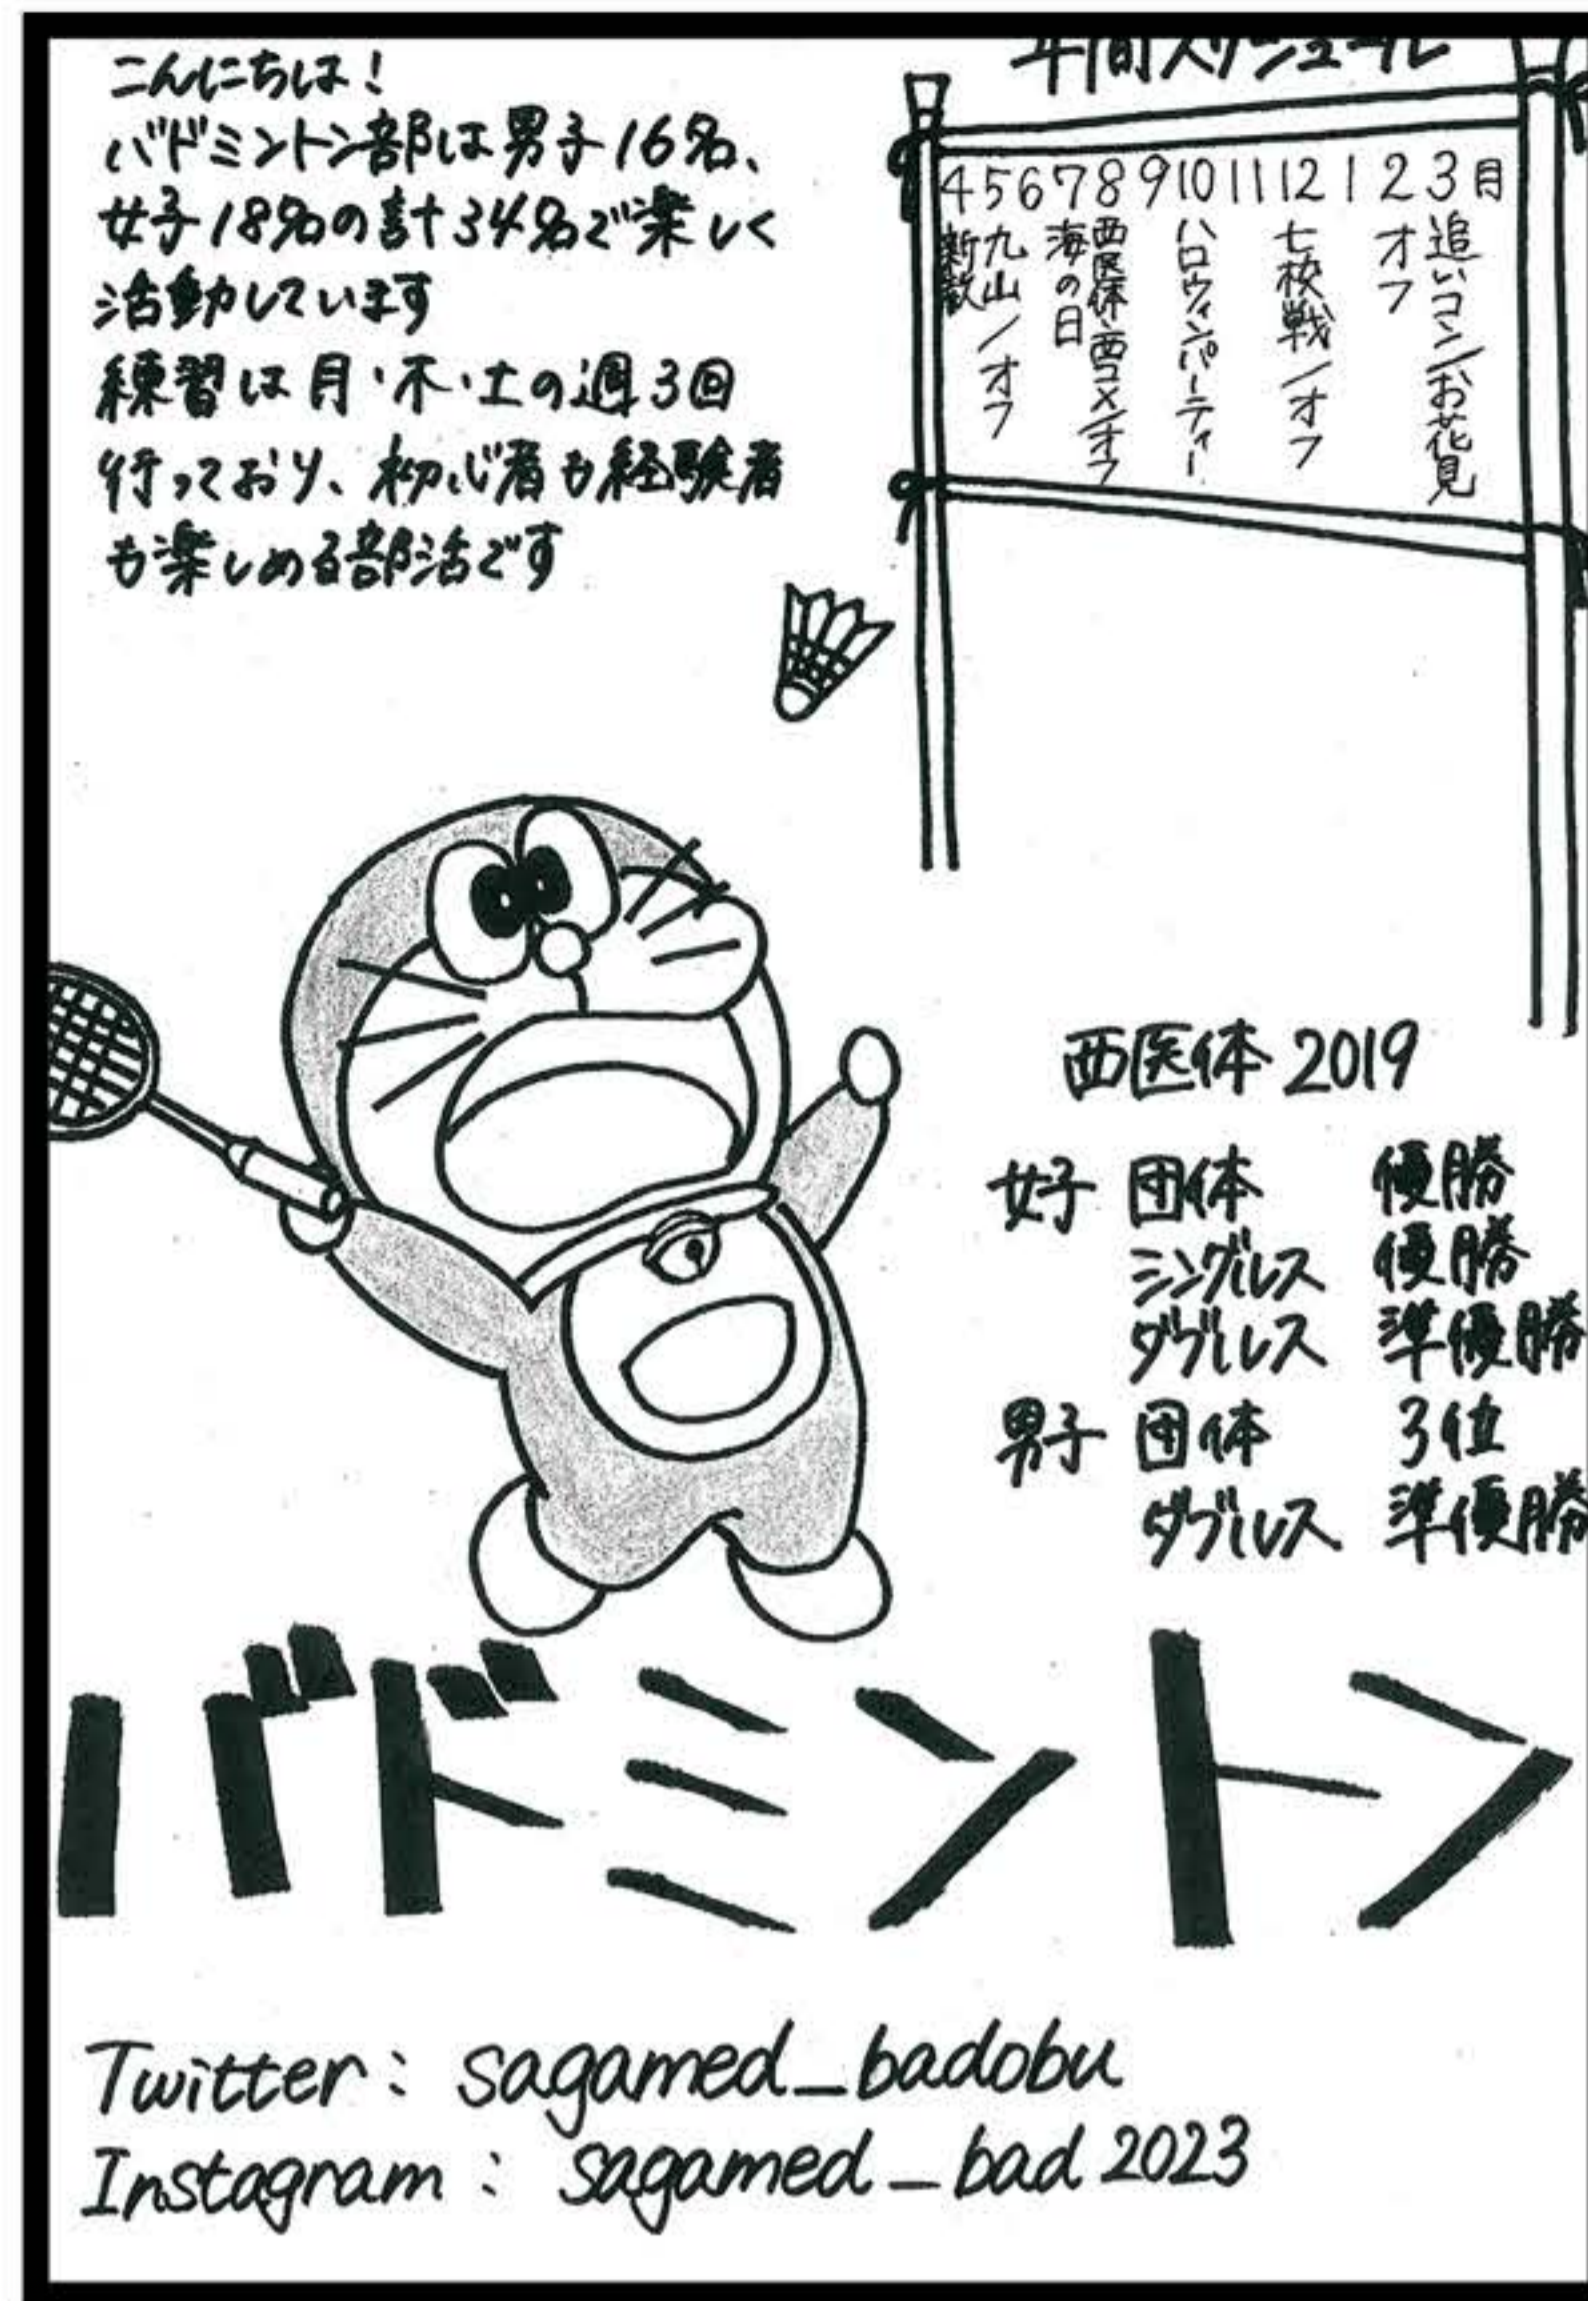 こんにちは!
バドミントン部は男子16名、
女子18名の計34名で楽しく
活動しています
練習は月・木・土の週3回
行っており、初心者も経験者
も楽しめる部活です
年間スケジュール
4 5 6 7 8 9 10 11 12 1 2 3月
新歓
九山/オフ
海の日
西医体・西コメ/オフ
ハロウィンパーティー
七校戦/オフ
オフ
追いコン/お花見
西医体 2019
女子 団体 優勝
シングルス 優勝
ダブルス 準優勝
男子 団体 3位
ダブルス 準優勝
バドミントン
Twitter: sagamed_badobu
Instagram: sagamed_bad2023